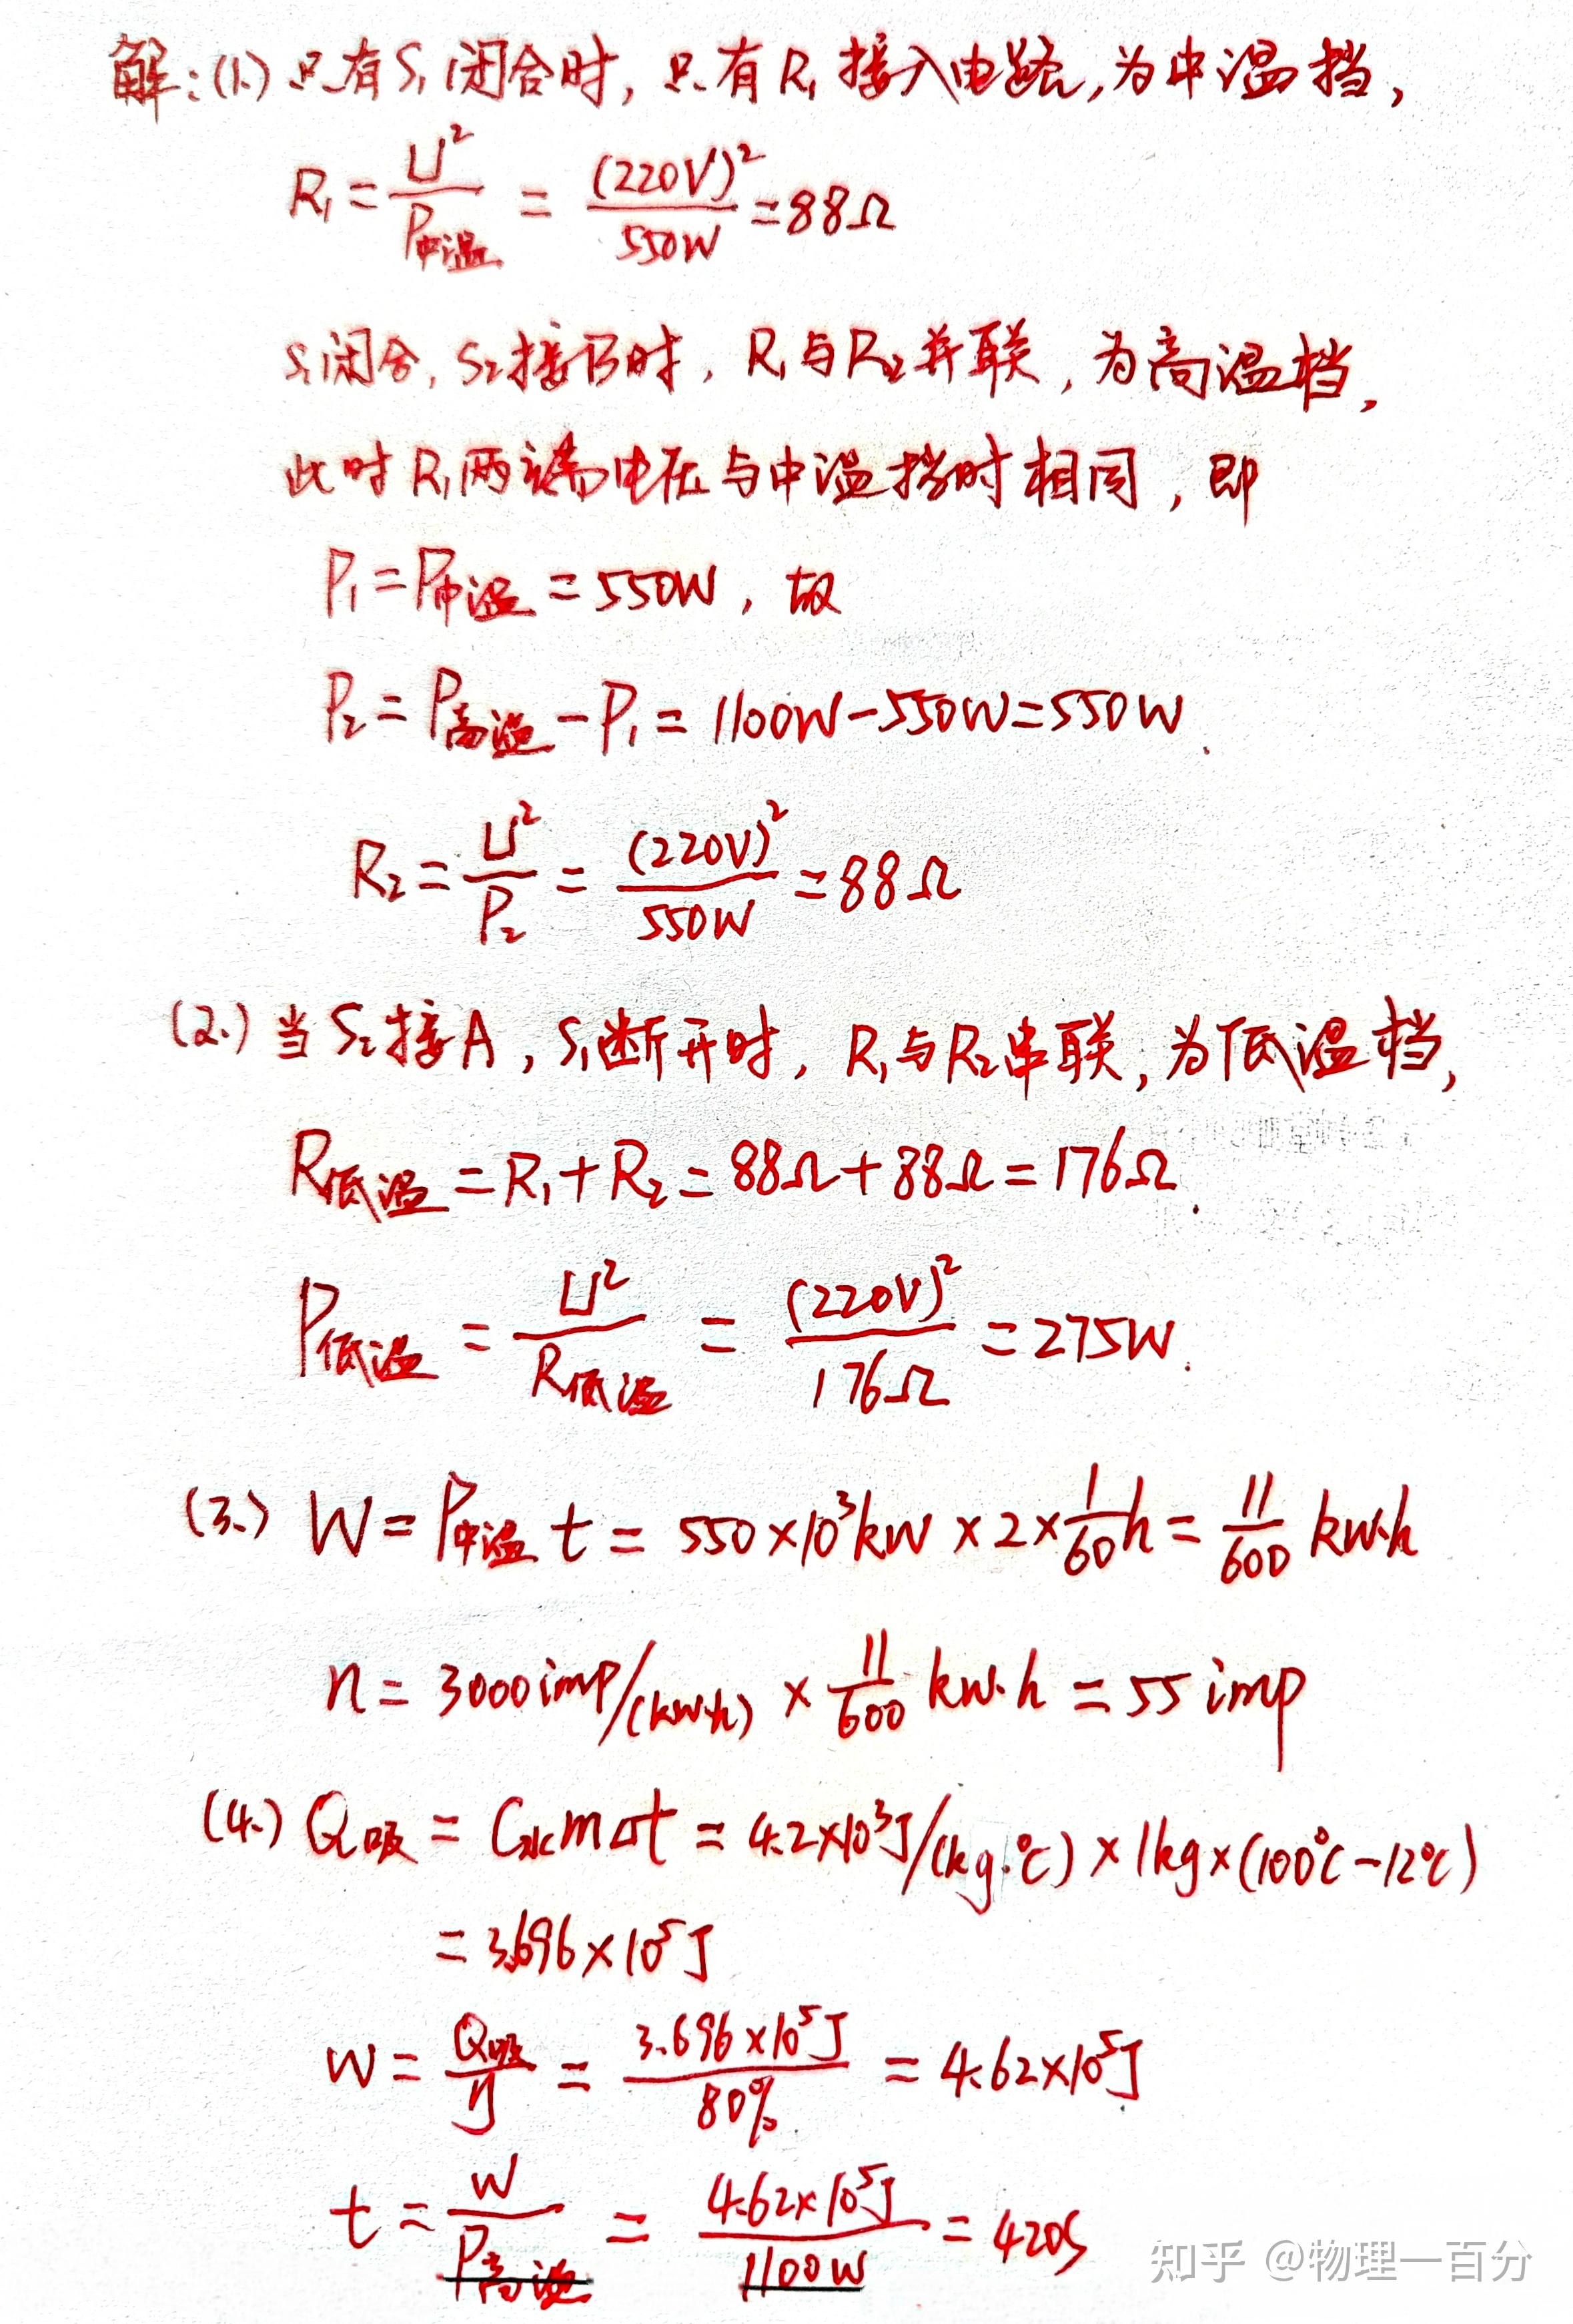 解:(1.) 只有S₁闭合时, 只有R₁接入电路,为中温挡,
R₁=U²/P中温=(220V)²/550W=88Ω
S₁闭合, S₂接B时, R₁与R₂并联, 为高温档,
此时R₁两端电压与中温挡时相同, 即
P₁=P中温=550W, 故
P₂=P高温-P₁=1100W-550W=550W.
R₂=U²/P₂=(220V)²/550W=88Ω
(2.) 当S₂接A, S₁断开时, R₁与R₂串联, 为低温档,
R低温=R₁+R₂=88Ω+88Ω=176Ω.
P低温=U²/R低温=(220V)²/176Ω=275W.
(3.) W=P中温t=550×10³kW×2×1/60h=11/600 kW·h
n=3000imp/(kW·h)×11/600 kW·h=55imp
(4.) Q吸=C水mΔt=4.2×10³J/(kg·℃)×1kg×(100℃-12℃)
=3.696×10⁵J
W=Q吸/η=3.696×10⁵J/80%=4.62×10⁵J
t=W/P高温=4.62×10⁵J/1100W=420S
知乎 @物理一百分